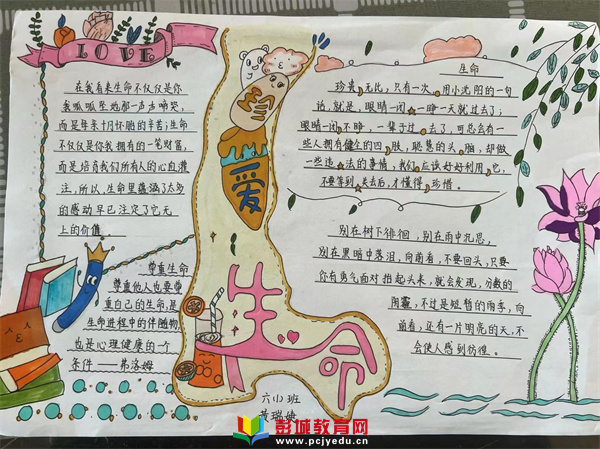 LOVE
在我看来生命不仅仅是你
我呱呱坠地那一声声啼哭,
而是母亲十月怀胎的辛苦;生命
不仅仅是你我拥有的一笔财富,
而是培育我们所有人的心血灌
注,所以,生命里蕴涵了太多
的感动早已注定了它无
上的价值。
尊重生命
尊重他人也要尊
重自己的生命,是
生命进程中的伴随物,
也是心理健康的一个
条件 ——弗洛姆
爱
生命
六(1)班
黄瑞婕
生命
珍贵无比,只有一次。用小沈阳的一句
话,就是,眼睛一闭,一睁一天就过去了;
眼睛一闭,不睁,一辈子过去了,可总会有一
些人拥有健全的四肢,聪慧的头脑,却做
一些违法的事情;我们应该好好利用它,
不要等到失去后,才懂得珍惜。
别在树下徘徊,别在雨中沉思,
别在黑暗中落泪,向前看,不要回头,只要
你有勇气面对抬起头来,就会发现,分数的
阴霾,不过是短暂的雨季,向
前看,还有一片明亮的天,不
会使人感到彷徨。
彭城教育网
www.pcjyedu.cn